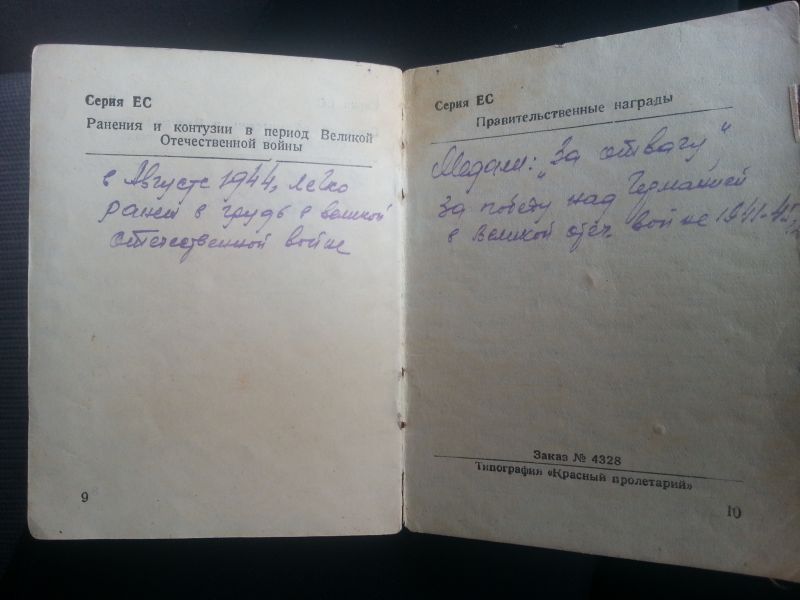 Серия ЕС
Ранения и контузии в период Великой
Отечественной войны
в Августе 1944, легко
ранен в грудь в великой
отечественной войне
9
Серия ЕС
Правительственные награды
Медали: „За отвагу„
За победу над Германией
в Великой отеч. войне 1941-45
Заказ № 4328
Типография «Красный пролетарий»
10